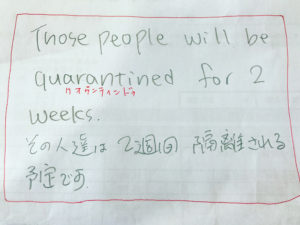 Those people will be
quarantined for 2
クオランティンドゥ
weeks.
その人達は2週間 隔離される
予定です